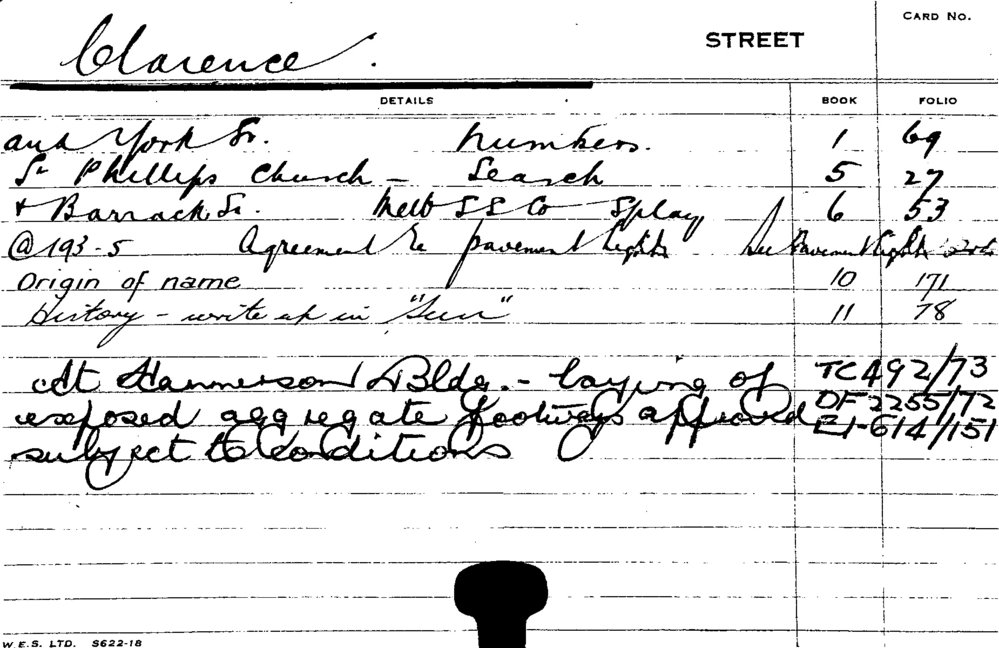 CARD NO.
Clarence. STREET
DETAILS BOOK FOLIO
and York St. Numbers. 1 69
St Phillips Church - Search 5 27
+ Barrack St. Melb S S Co Splay 6 53
@ 193-5 Agreement re pavement lights See Pavement Lights
Origin of name 10 171
History - write up in "Sun" 11 78
At Hammerson Bldg. - laying of TC492/73
exposed aggregate footways approved DF2255/72
subject to conditions E1-614/151
W.E.S. LTD. S622-18